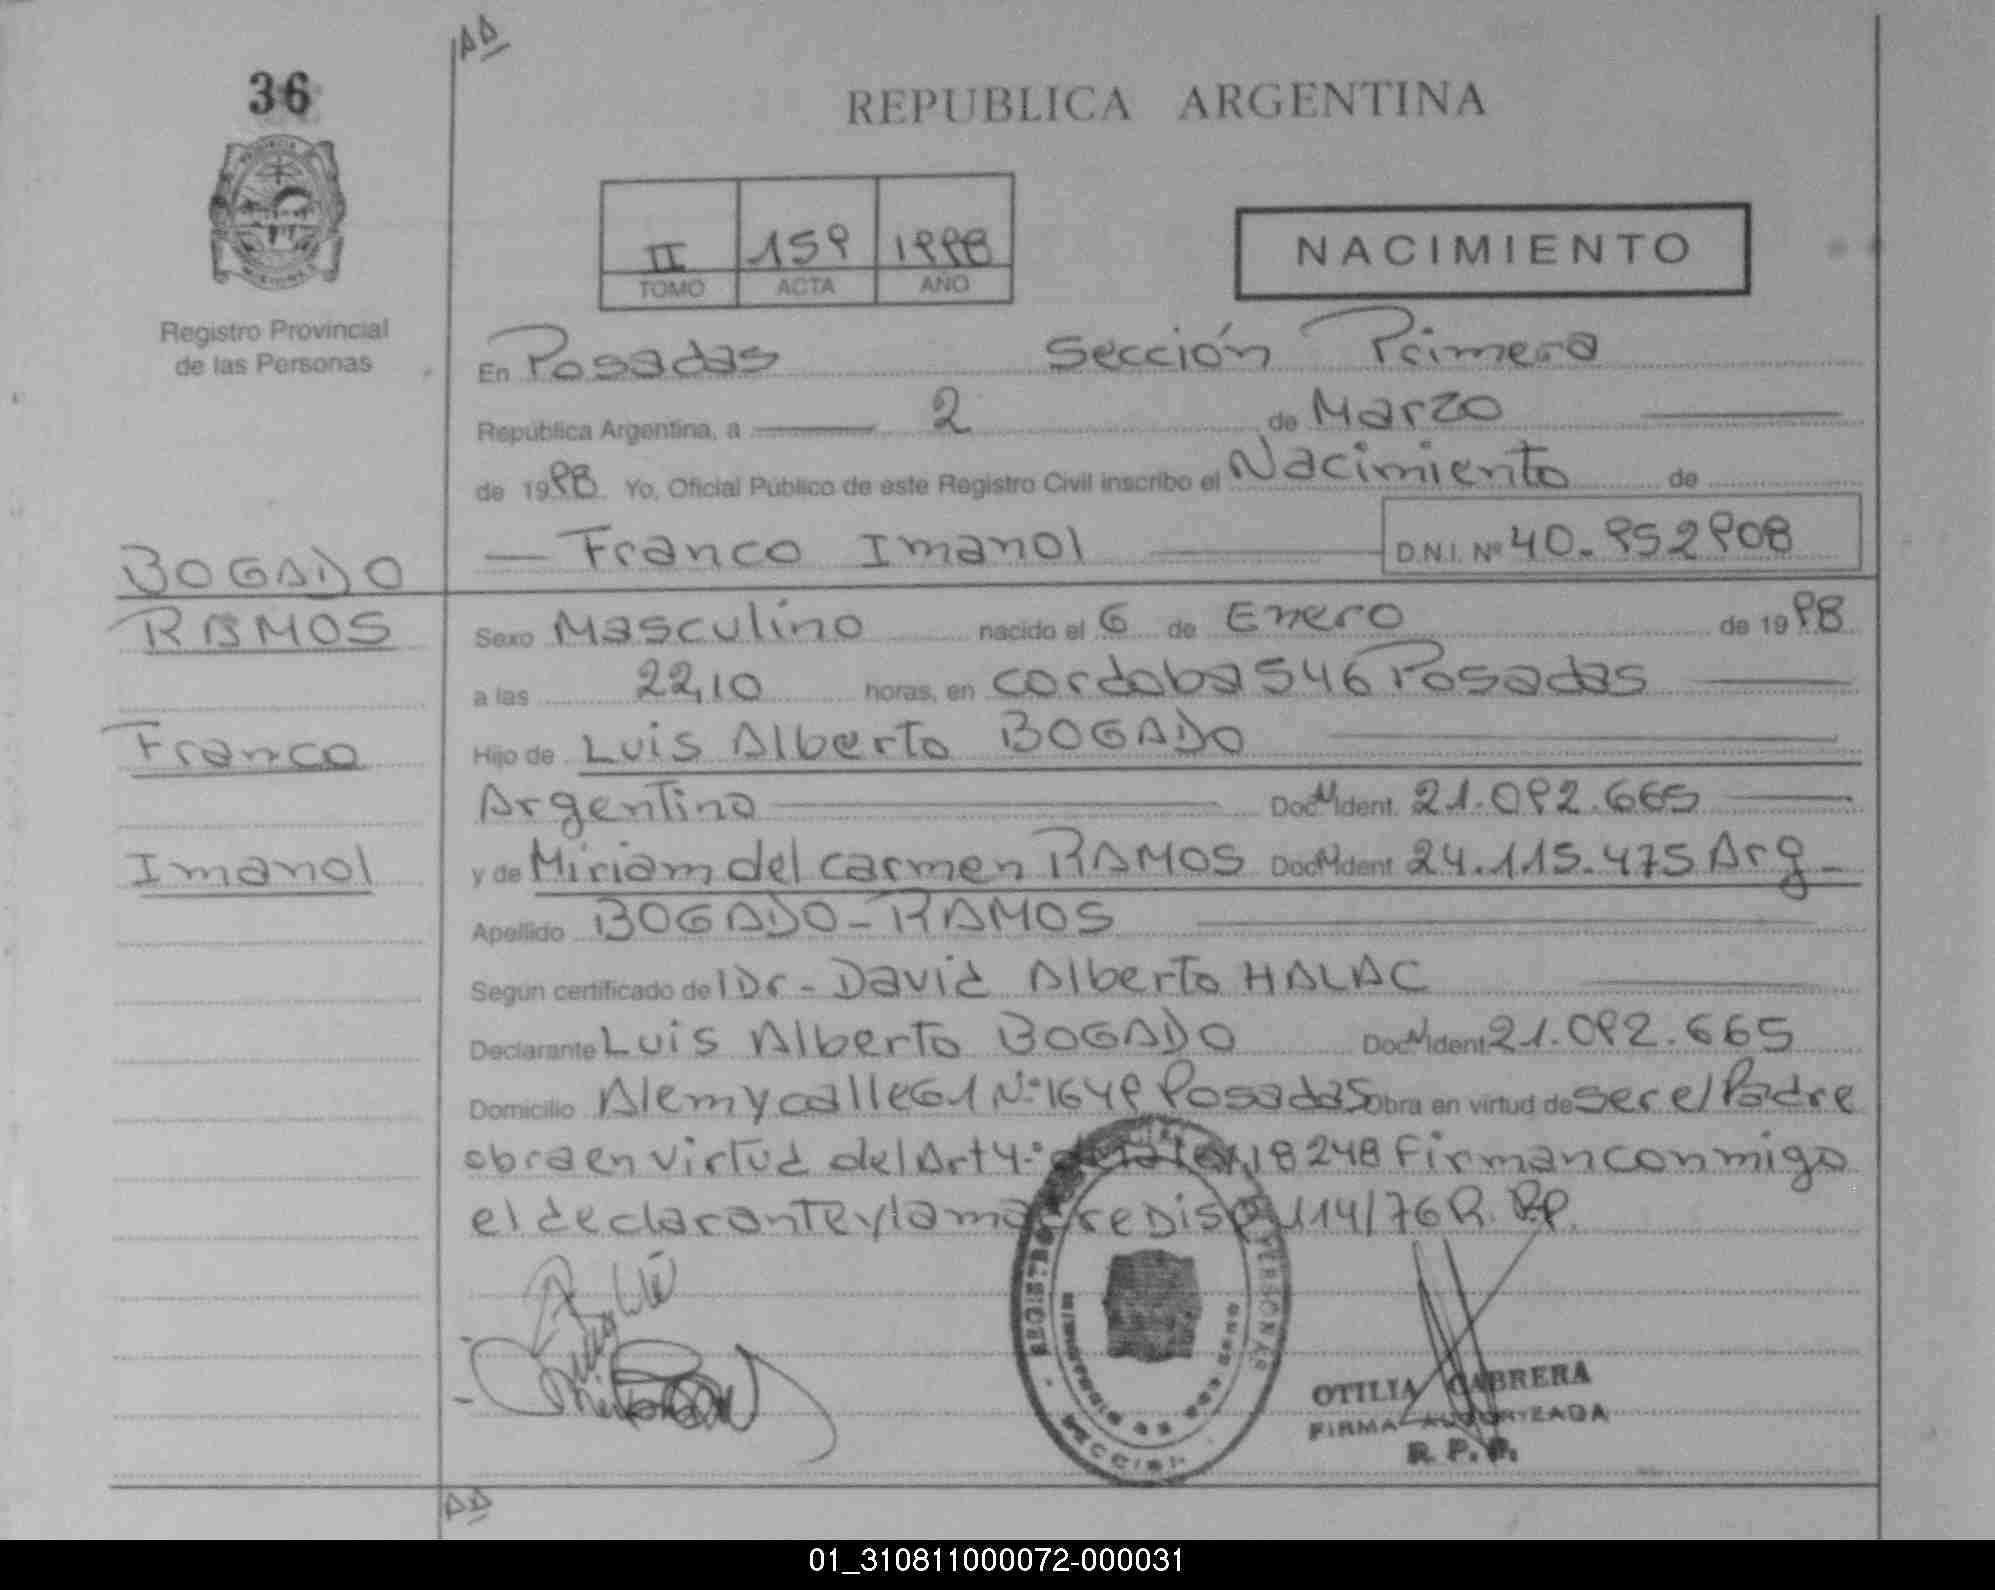 AA
36
REPUBLICA ARGENTINA
II 159 1998
TOMO ACTA AÑO
NACIMIENTO
Registro Provincial
de las Personas
En Posadas Sección Primera
República Argentina, a 2 de Marzo
de 1998 Yo, Oficial Público de este Registro Civil inscribo el Nacimiento de
Franco Imanol D.N.I. Nº 40.952908
BOGADO
RAMOS
Franco
Imanol
Sexo Masculino nacido el 6 de Enero de 1998
a las 22,10 horas, en cordoba 546 Posadas
Hijo de Luis Alberto BOGADO
Argentino Doc. Ident. 21.092.665
y de Miriam del carmen RAMOS Doc. Ident 24.115.475 Arg
Apellido BOGADO-RAMOS
Según certificado del Dr- David Alberto HALAC
Declarante Luis Alberto BOGADO Doc. Ident 21.092.665
Domicilio Alem y calle 61 Nº 1649 Posadas Obra en virtud de ser el Padre
obra en virtud del Art 4º 18248 Firman conmigo
el declarante y la madre Disp 114/76 R.P.P.
REGISTRO PERSONAS
OTILIA CABRERA
FIRMA AUTORIZADA
R. P. P.
AA
01_310811000072-000031